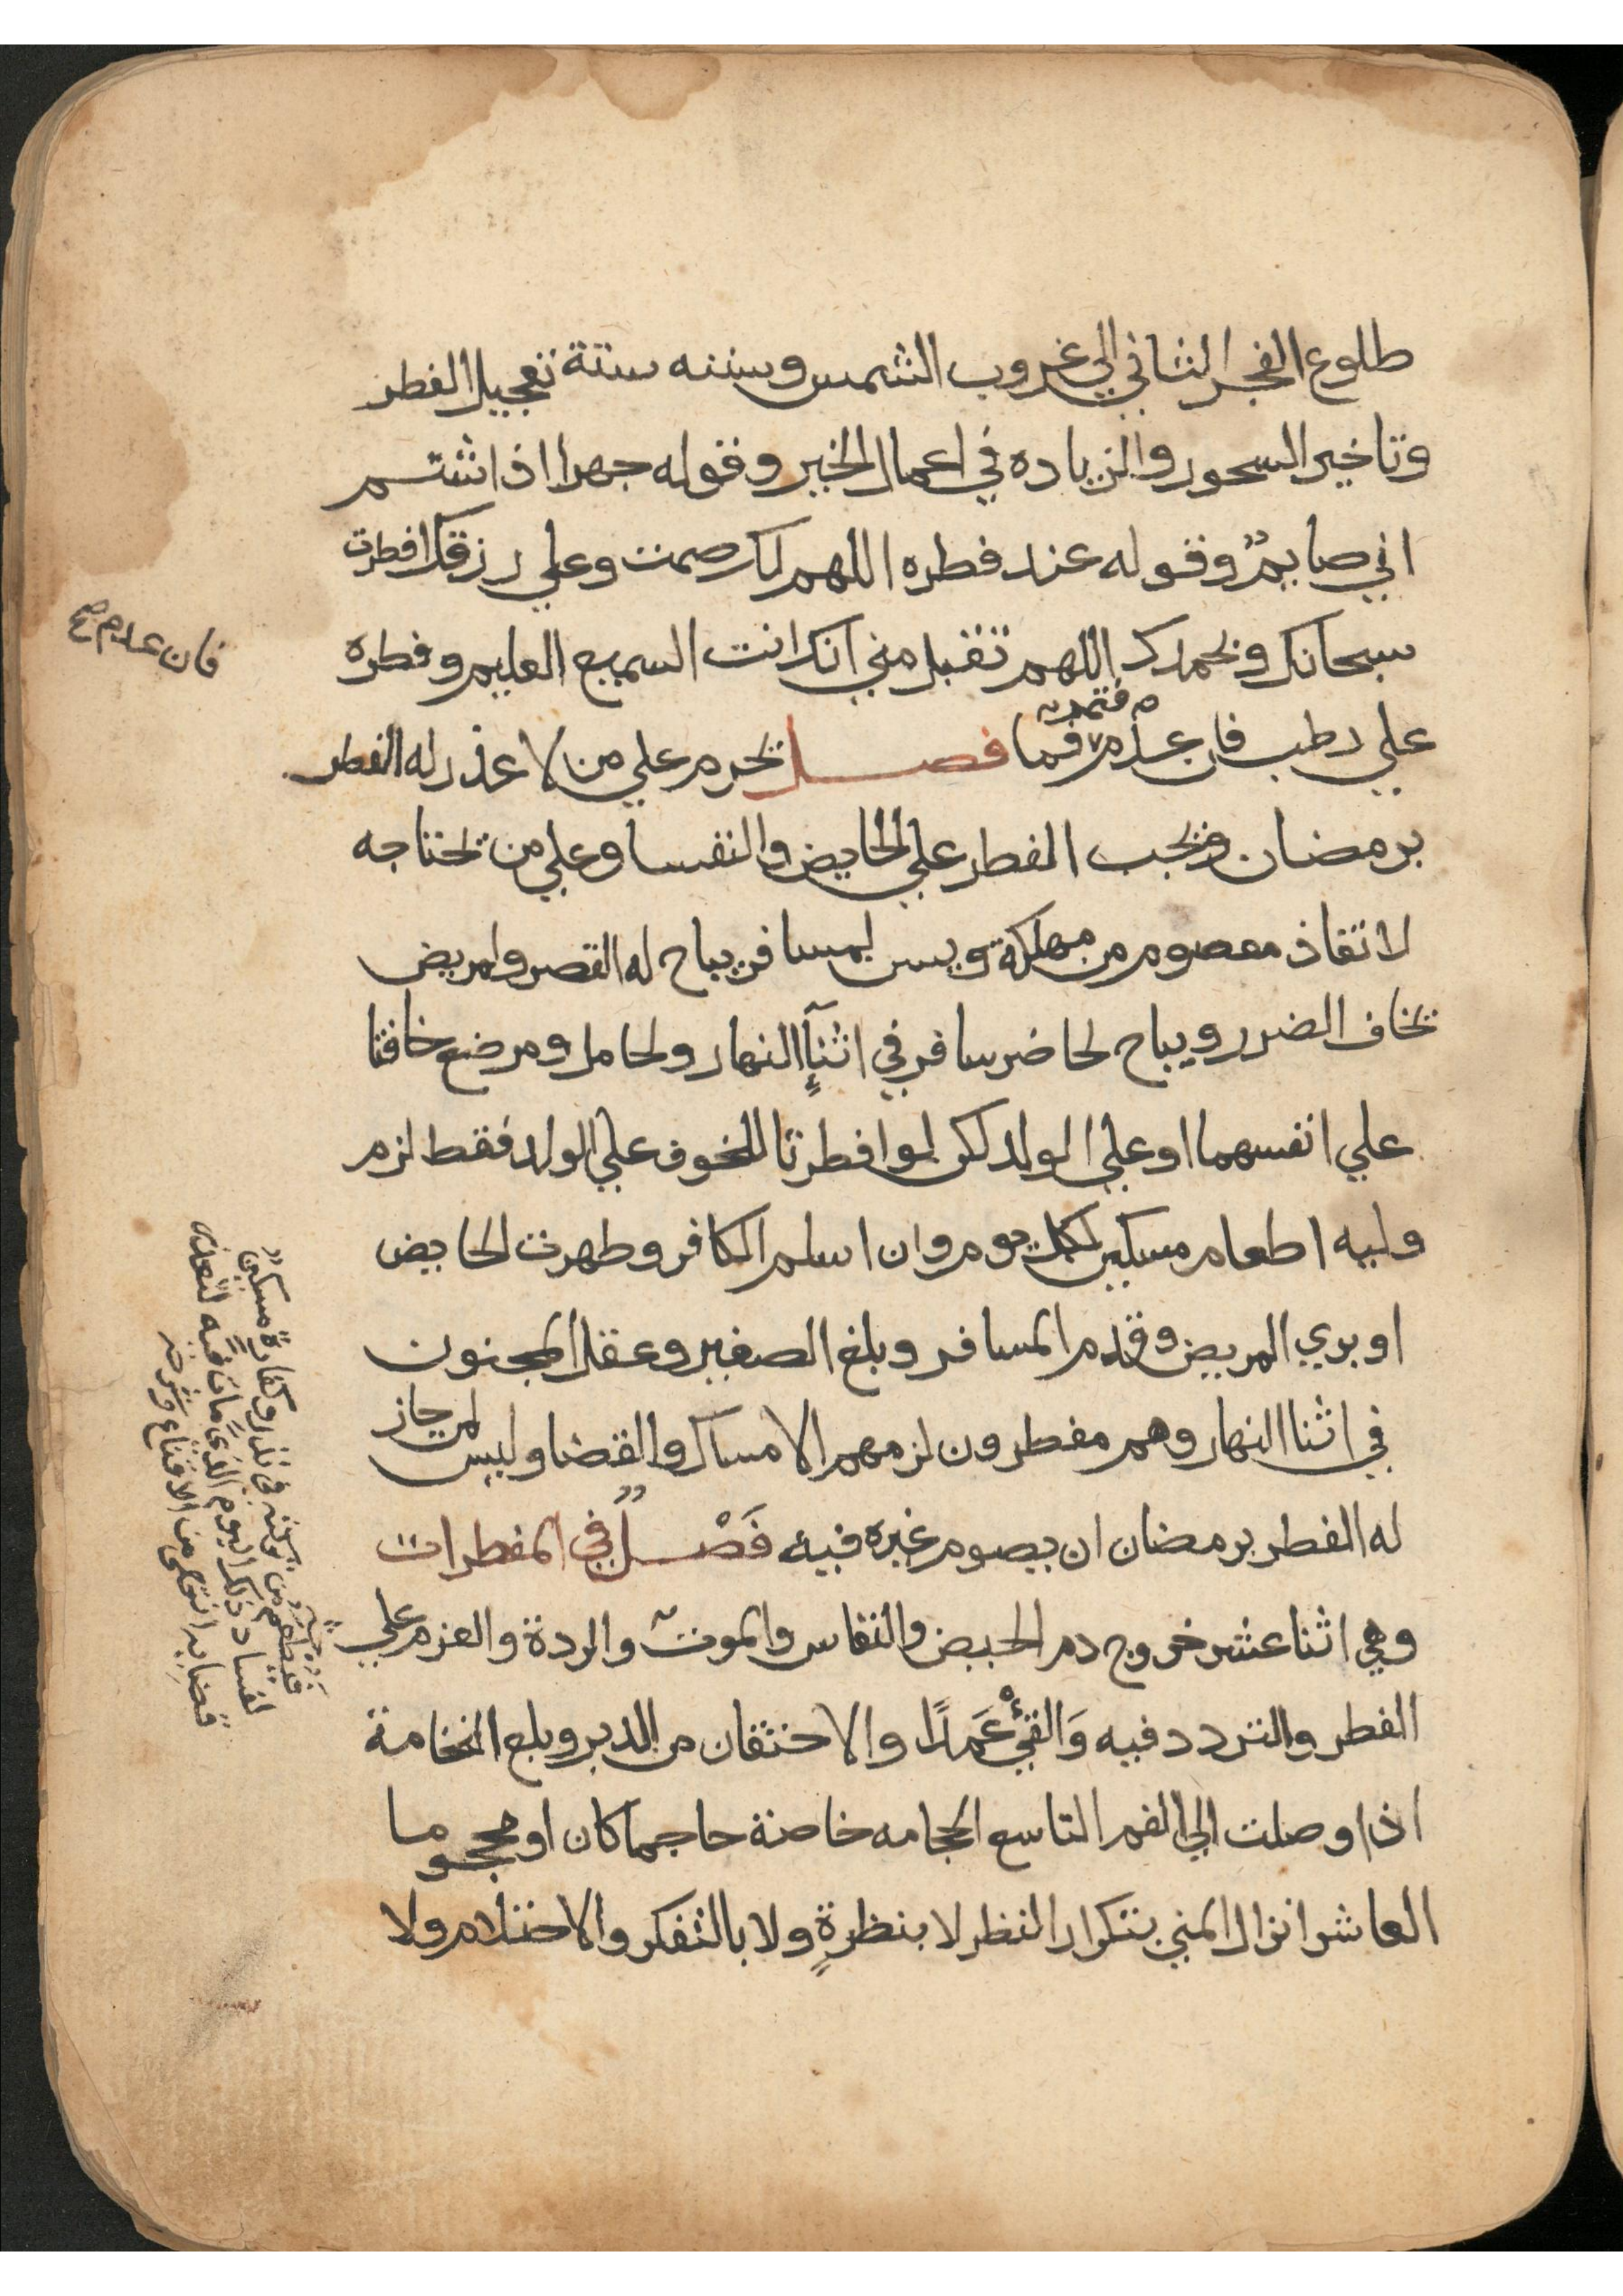 طلوع الفجر الثاني الي غروب الشمس وسننه ستة تعجيل الفطر
وتاخير السحور والزياده في اعمال الخير وقوله جهرا اذا شتم
اني صايمٌ وقوله عند فطره اللهم لك صمت وعلي رزقك افطرت
سبحانك وبحمدك اللهم تقبل مني انك انت السميع العليم وفطره
فان عدم صح
فتمر
علي رطب فان عدم فما فصل يحرم علي من لا عذر له الفطر
برمضان ويجب الفطر علي الحايض والنفسا وعلي من يحتاجه
لانقاذ معصوم من مهلكة ويسن لمسافر يباح له القصر ولمريض
يخاف الضرر ويباح لحاضر سافر في اثنآءِ النهار ولحامل ومرضع خافتا
علي انفسهما او علي الولد لكن لو افطرتا للخوف علي الولد فقط لزم
وليه اطعام مسكين لكل يوم وان اسلم الكافر وطهرت الحايض
او بري المريض وقدم المسافر وبلغ الصغير وعقل المجنون
في اثنا النهار وهم مفطرون لزمهم الامساك والقضا وليس لمن جاز
له الفطر برمضان ان يصوم غيره فيه فَصْلٌ في المفطرات
وهي اثنا عشر خروج دم الحيض والنفاس والموت والردة والعزم علي
الفطر والتردد فيه وَالقئُ عَمدًا والاحتقان من الدبر وبلع النخامة
اذا وصلت الي الفم التاسع الحجامه خاصة حاجما كان او محجوما
العاشر انزال المني بتكرار النظر لا بنظرةٍ ولا بالتفكر والاحتلام ولا
فيطعم من تركته في نذر وكفارة مسكين
لفساد ذلك اليوم الذي مات فيه لتعذر
قضايه انتهى من الاقناع وشرحه